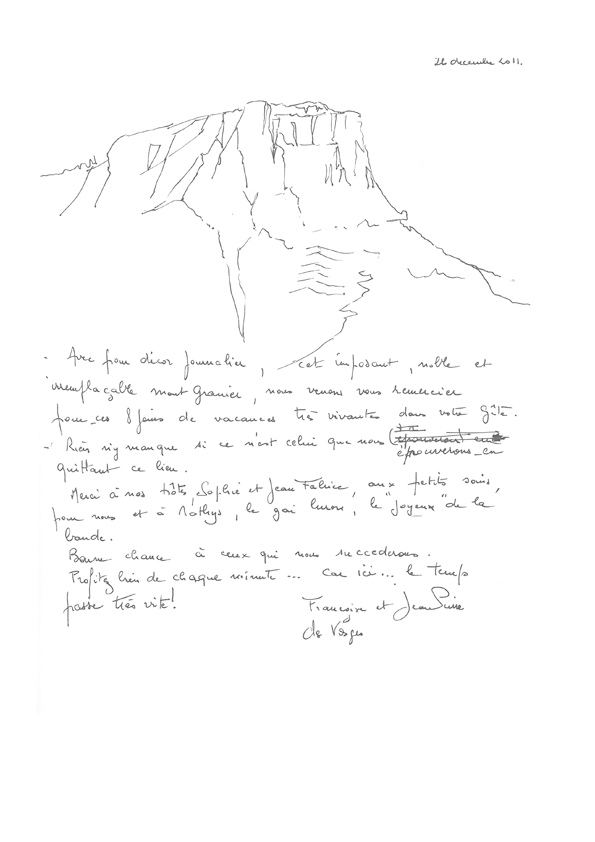 26 decembre 2011.
- Avec pour décor journalier, cet imposant, noble et
irremplaçable mont Granier, nous venons vous remercier
pour ces 8 jours de vacances très vivantes dans votre Gîte.
- Rien n'y manque si ce n'est celui que nous
éprouverons en
quittant ce lieu.
Merci à nos hôtes Sophie et Jean Fabrice, aux petits soins,
pour nous et à Mathys, le gai luron, le "Joyeux" de la
bande.
Bonne chance à ceux qui nous succederons.
Profitez bien de chaque minute... car ici... le temps
passe très vite!
Françoise et Jean Pierre
des Vosges